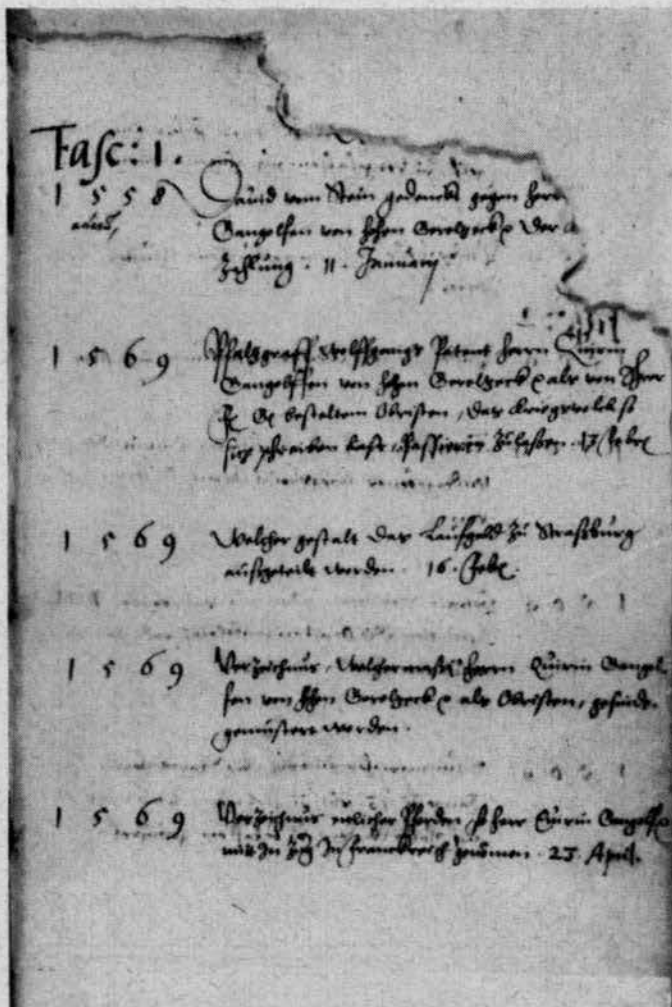 Fasc: 1.
1558 Dauid vom Stein gedenckt gegen herr
Gangolfen von hohen Gerolzeck der
Zehlung. 11. Januarij
1569 Pfaltzgraff Wolffgangs Patent herrn Quirin
Gangolffen von hohen Gerolzeck als von Ihrer
bestaltem Obristen, das kriegsvolck so
sich schreiben lasst, Passieren zulassen. 13 Febr
1569 Welcher gestalt das Lauffgeld zu Straßburg
aussgeteilt worden. 16. Febr.
1569 Verzeichnus, welchermassen herrn Quirin Gangol
fen von hohen Gerolzeck als Obristen, gesinde
gemustert worden.
1569 Verzeichnus etlicher Pferden so herr Quirin Gangolff
mit In Zug In Franckreich genomen. 23. April.